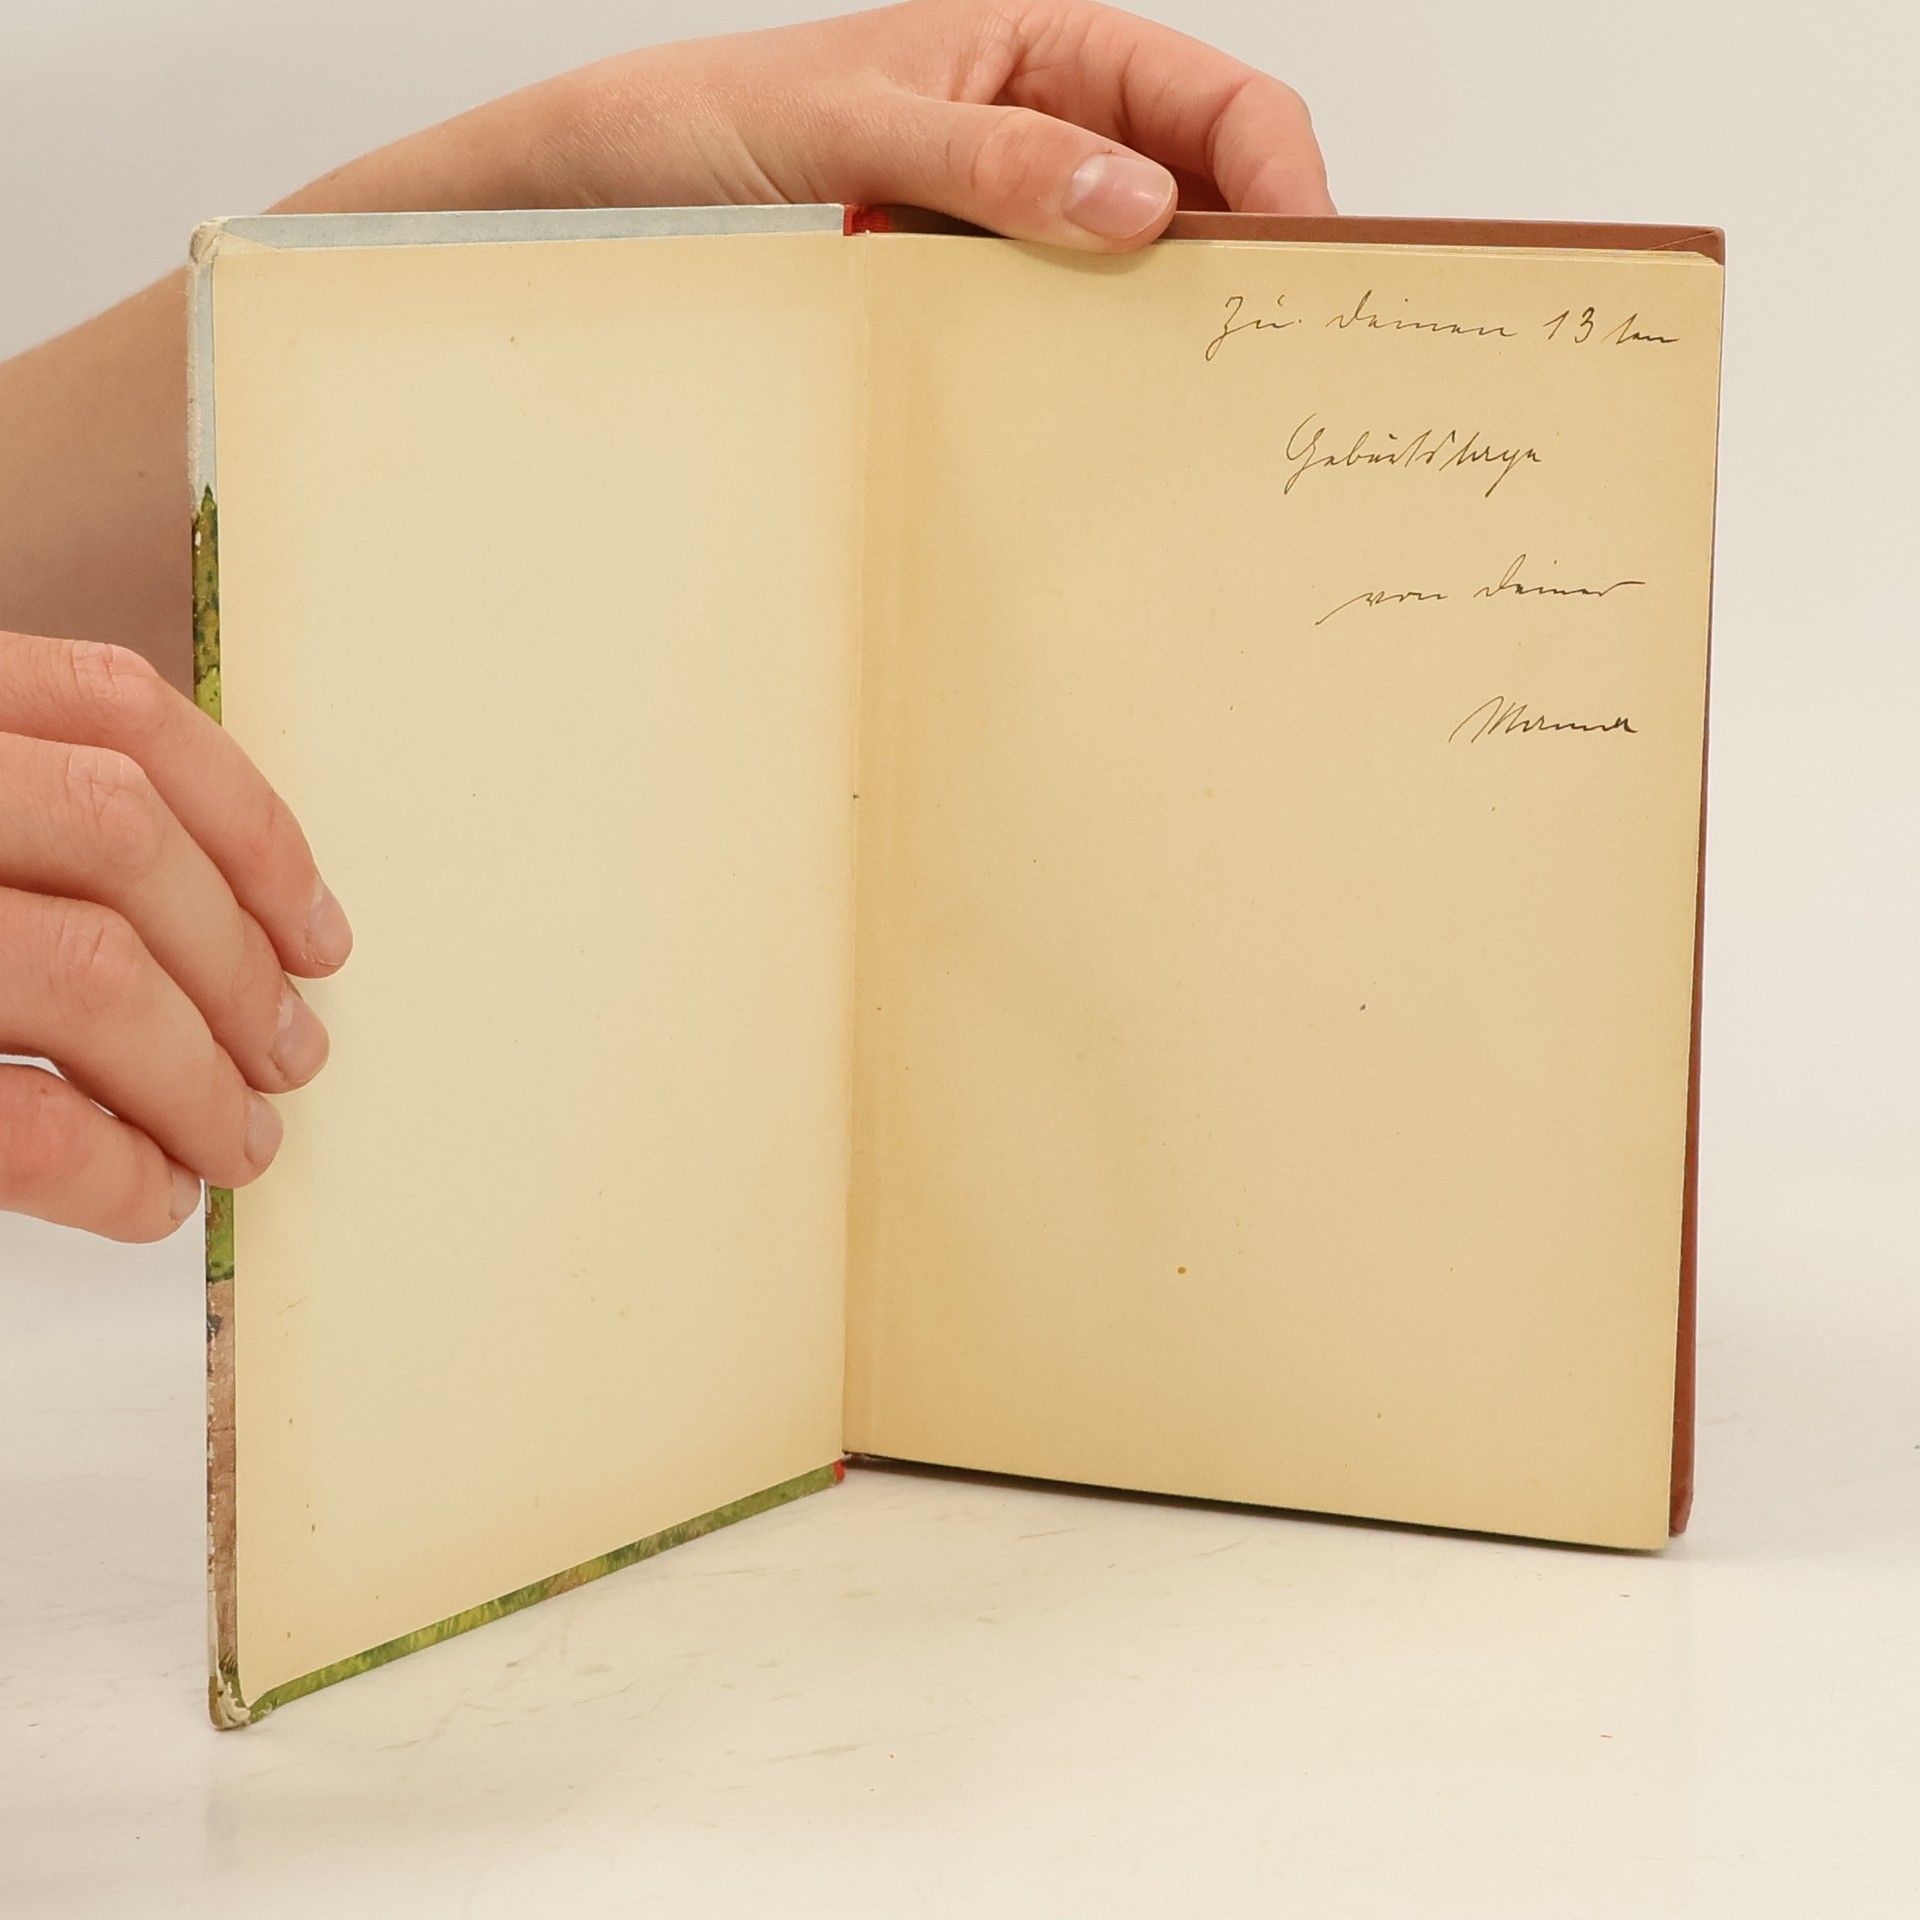 Zu Deinen 13 ten
Geburtstage
von Deiner
Mamma